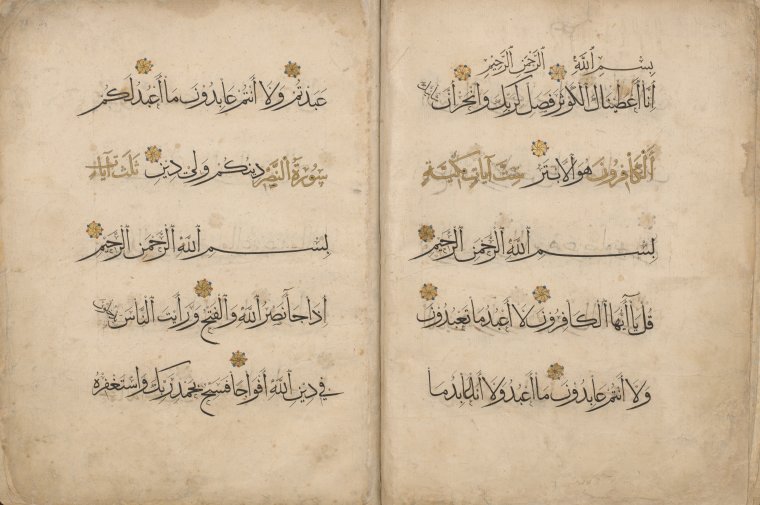 بسم الله الرحمن الرحيم
انا أعطيناك الكوثر فصل لربك وانحر ان شانئك
الكافرون هو الابتر ست آيات مكية
بسم الله الرحمن الرحيم
قل يا أيها الكافرون لا أعبد ما تعبدون
ولا أنتم عابدون ما أعبد ولا أنا عابد ما
عبدتم ولا أنتم عابدون ما أعبد لكم
سورة النصر دينكم ولي دين ثلث آيات
بسم الله الرحمن الرحيم
إذا جا نصر الله والفتح ورأيت الناس يدخلون
في دين الله أفواجا فسبح بحمد ربك واستغفره